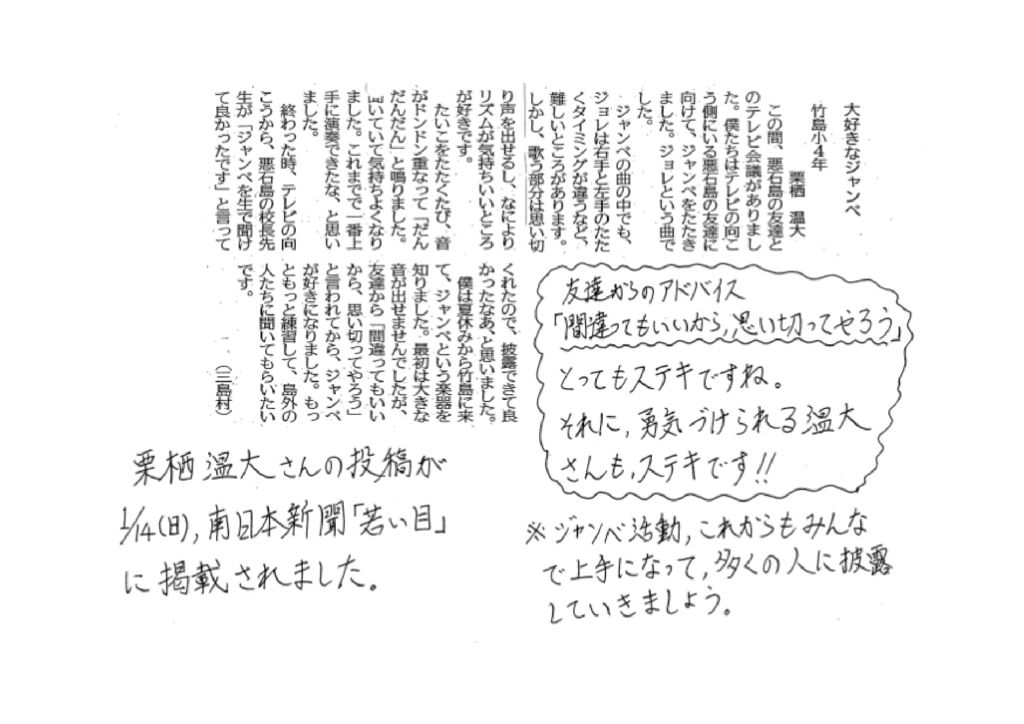 大好きなジャンベ
竹島小4年
栗栖 温大
この間、悪石島の友達と
のテレビ会議がありまし
た。僕たちはテレビの向こ
う側にいる悪石島の友達に
向けて、ジャンベをたたき
ました。ジョレという曲で
した。
ジャンベの曲の中でも、
ジョレは右手と左手のたた
くタイミングが違うなど、
難しいところがあります。
しかし、歌う部分は思い切
り声を出せるし、なにより
リズムが気持ちいいところ
が好きです。
たいこをたたくたび、音
がドンドン重なって「だん
だんだん」と鳴りました。
いていて気持ちよくなり
ました。これまでで一番上
手に演奏できたな、と思い
ました。
終わった時、テレビの向
こうから、悪石島の校長先
生が「ジャンベを生で聞け
て良かったです」と言って
くれたので、披露できて良
かったなあ、と思いました。
僕は夏休みから竹島に来
て、ジャンベという楽器を
知りました。最初は大きな
音が出せませんでしたが、
友達から「間違ってもいい
から、思い切ってやろう」
と言われてから、ジャンベ
が好きになりました。もっ
ともっと練習して、島外の
人たちに聞いてもらいたい
です。
（三島村）
友達からのアドバイス
「間違ってもいいから,思い切ってやろう」
とってもステキですね。
それに,勇気づけられる温大
さんも,ステキです!!
栗栖温大さんの投稿が
1/14(日),南日本新聞「若い目」
に掲載されました。
※ジャンベ活動,これからもみんな
で上手になって,多くの人に披露
していきましょう。